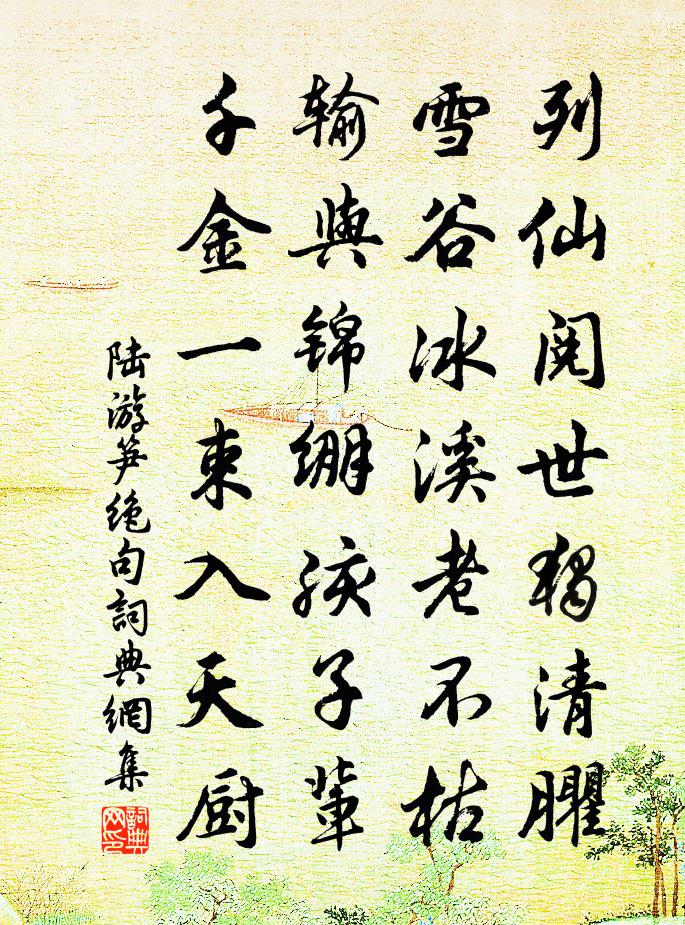 列仙閱世獨清臞
雪谷冰溪老不枯
輸與錦綳孩子輩
千金一束入天厨
陆游笋绝句詞典網集
詞典网印